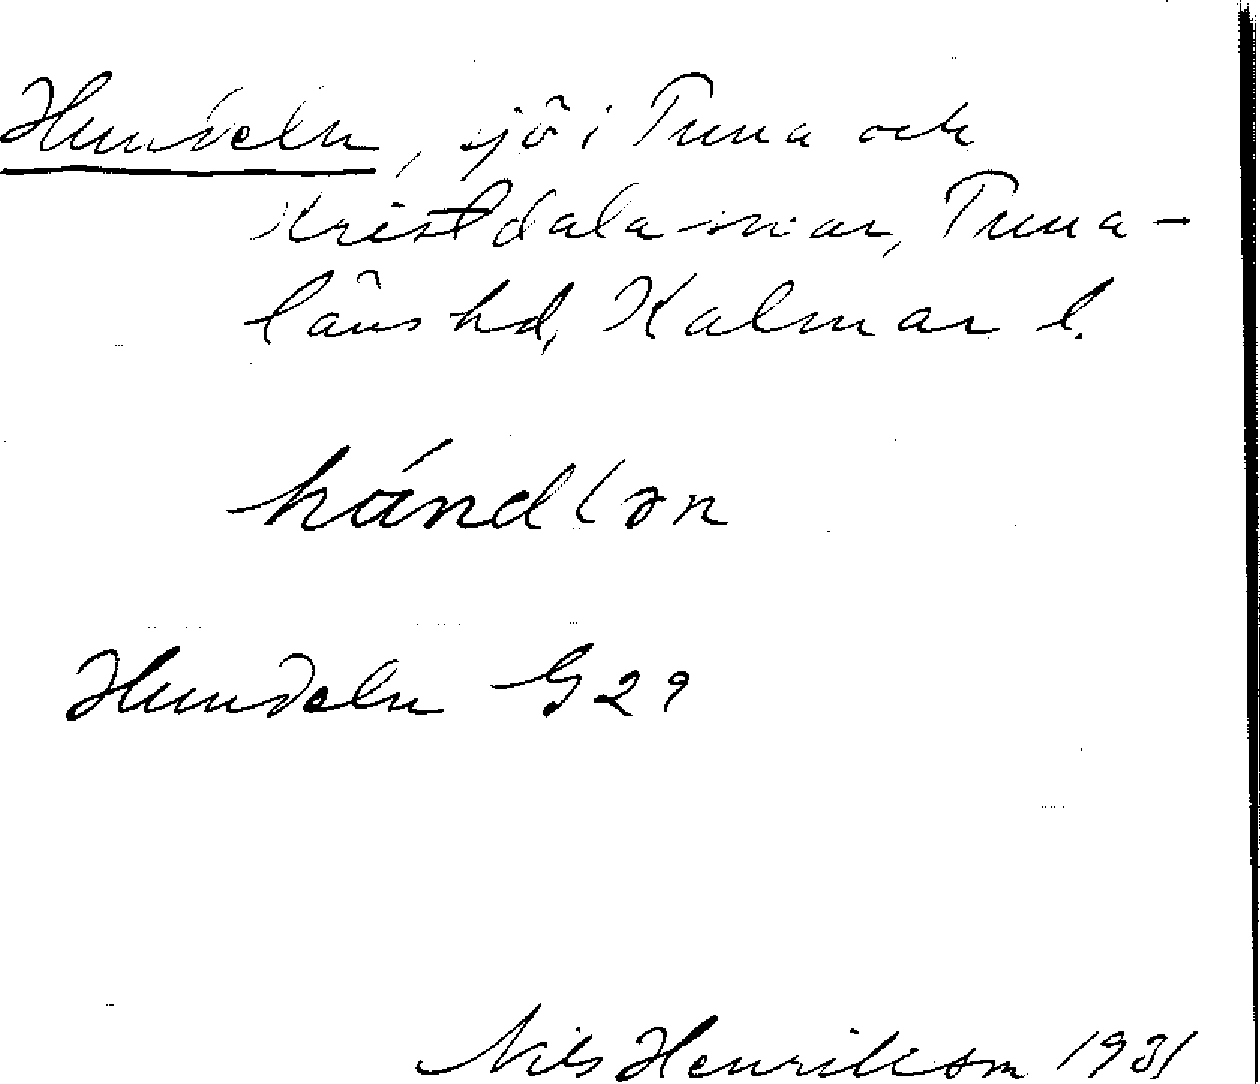 Hundeln, sjö i Tuna och
Kristdala snar, Tuna-
läns hd, Kalmar l.
hándlən
Hundeln G 29
Nils Henrikson 1931